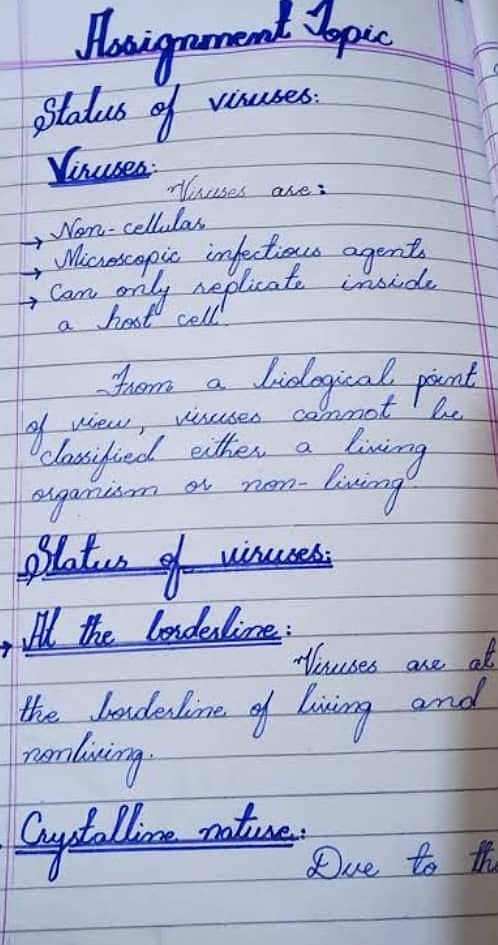 Assignment Topic
Status of viruses:
Viruses:
Viruses are:
→ Non-cellular
→ Microscopic infectious agents
→ Can only replicate inside
a host cell.
From a biological point
of view, viruses cannot be
classified either a living
organism or non-living
Status of viruses:
→ At the borderline:
Viruses are at
the borderline of living and
nonliving.
Crystalline nature:
Due to